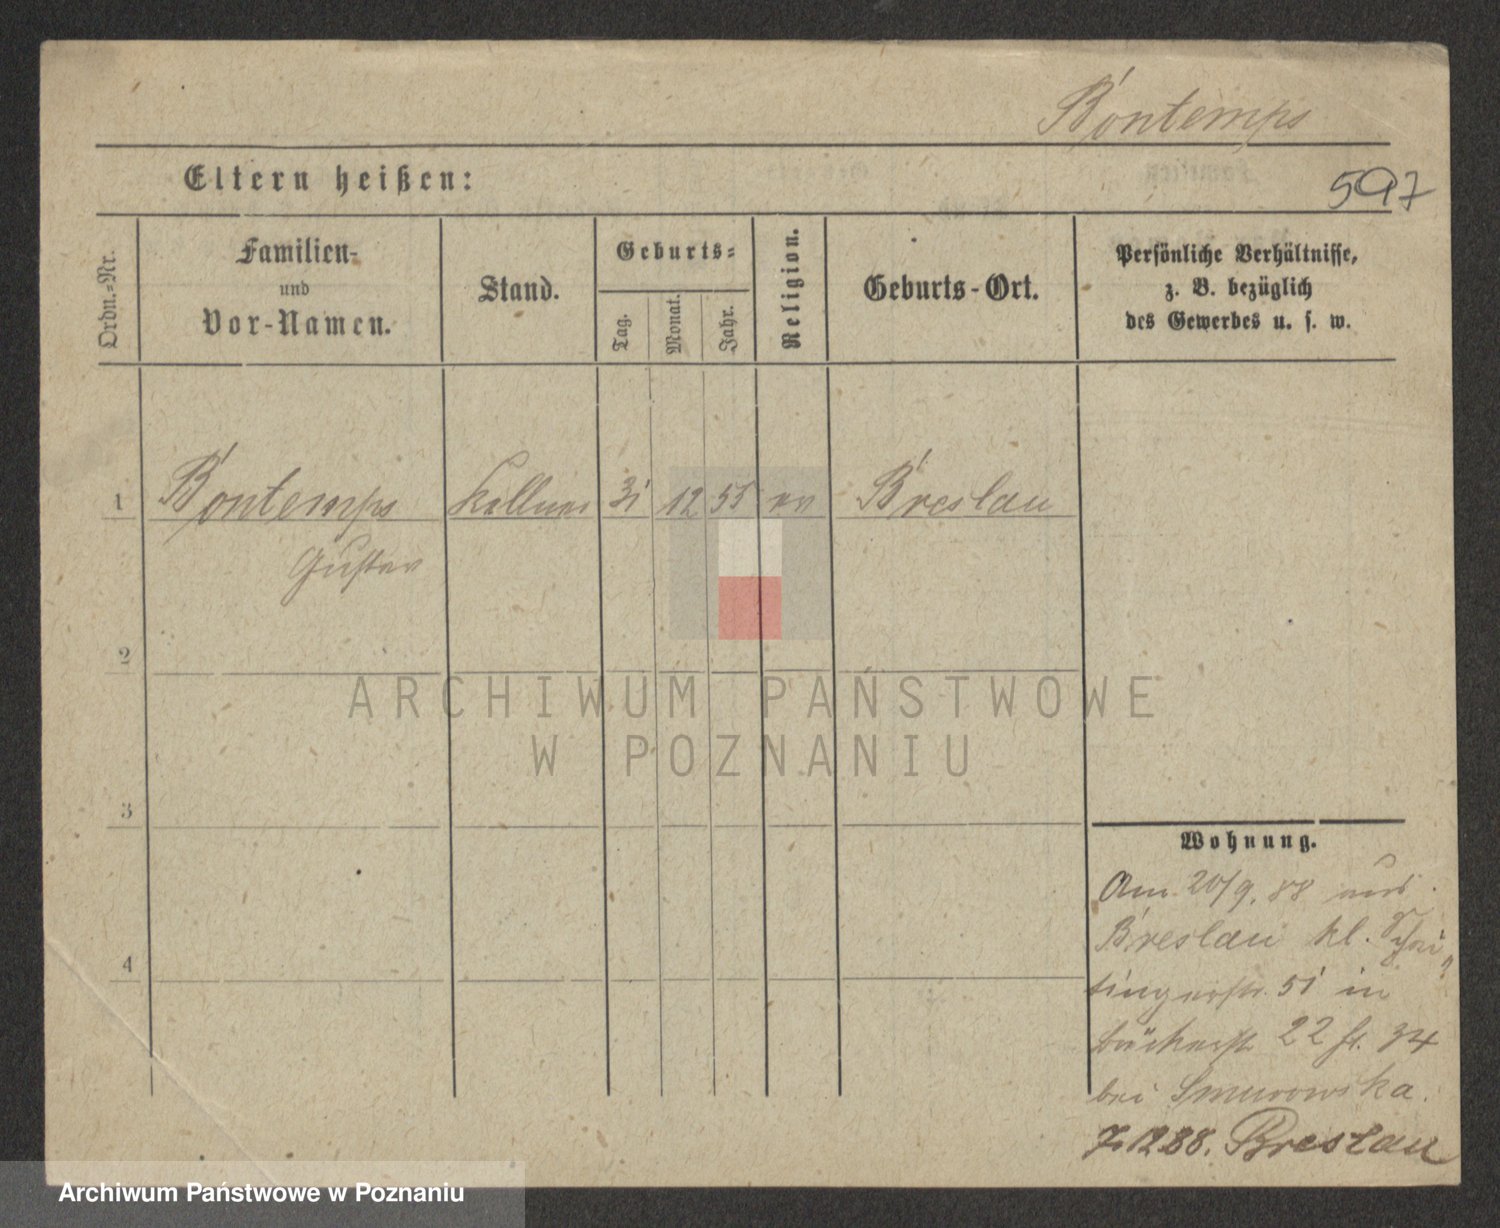 Bontemps
Eltern heißen:
597
Ordn.-Nr.
Familien-
und
Vor-Namen.
Stand.
Geburts-
Tag.
Monat.
Jahr.
Religion.
Geburts-Ort.
Persönliche Verhältnisse,
z. B. bezüglich
des Gewerbes u. s. w.
1 Bontemps Kellner 31 12 55 ev Breslau
Gustav
2
ARCHIWUM PAŃSTWOWE
W POZNANIU
3
Wohnung.
Am 20/9. 88 aus
Breslau kl.
51 in
22
bei Smurowska.
12 88. Breslau
4
Archiwum Państwowe w Poznaniu